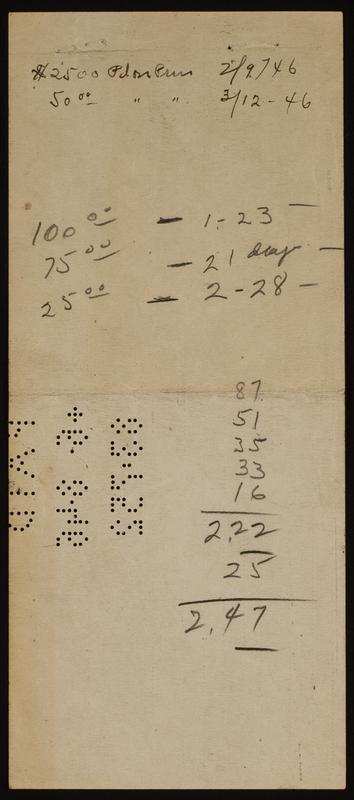 $25.00 Pd on Prin 2/9/46
50 00 " " 3/12-46
100 00 — 1-23 —
75 00 — 21 days —
25 00 — 2-28 —
87
51
35
33
16
2.22
25
2.47
PAID